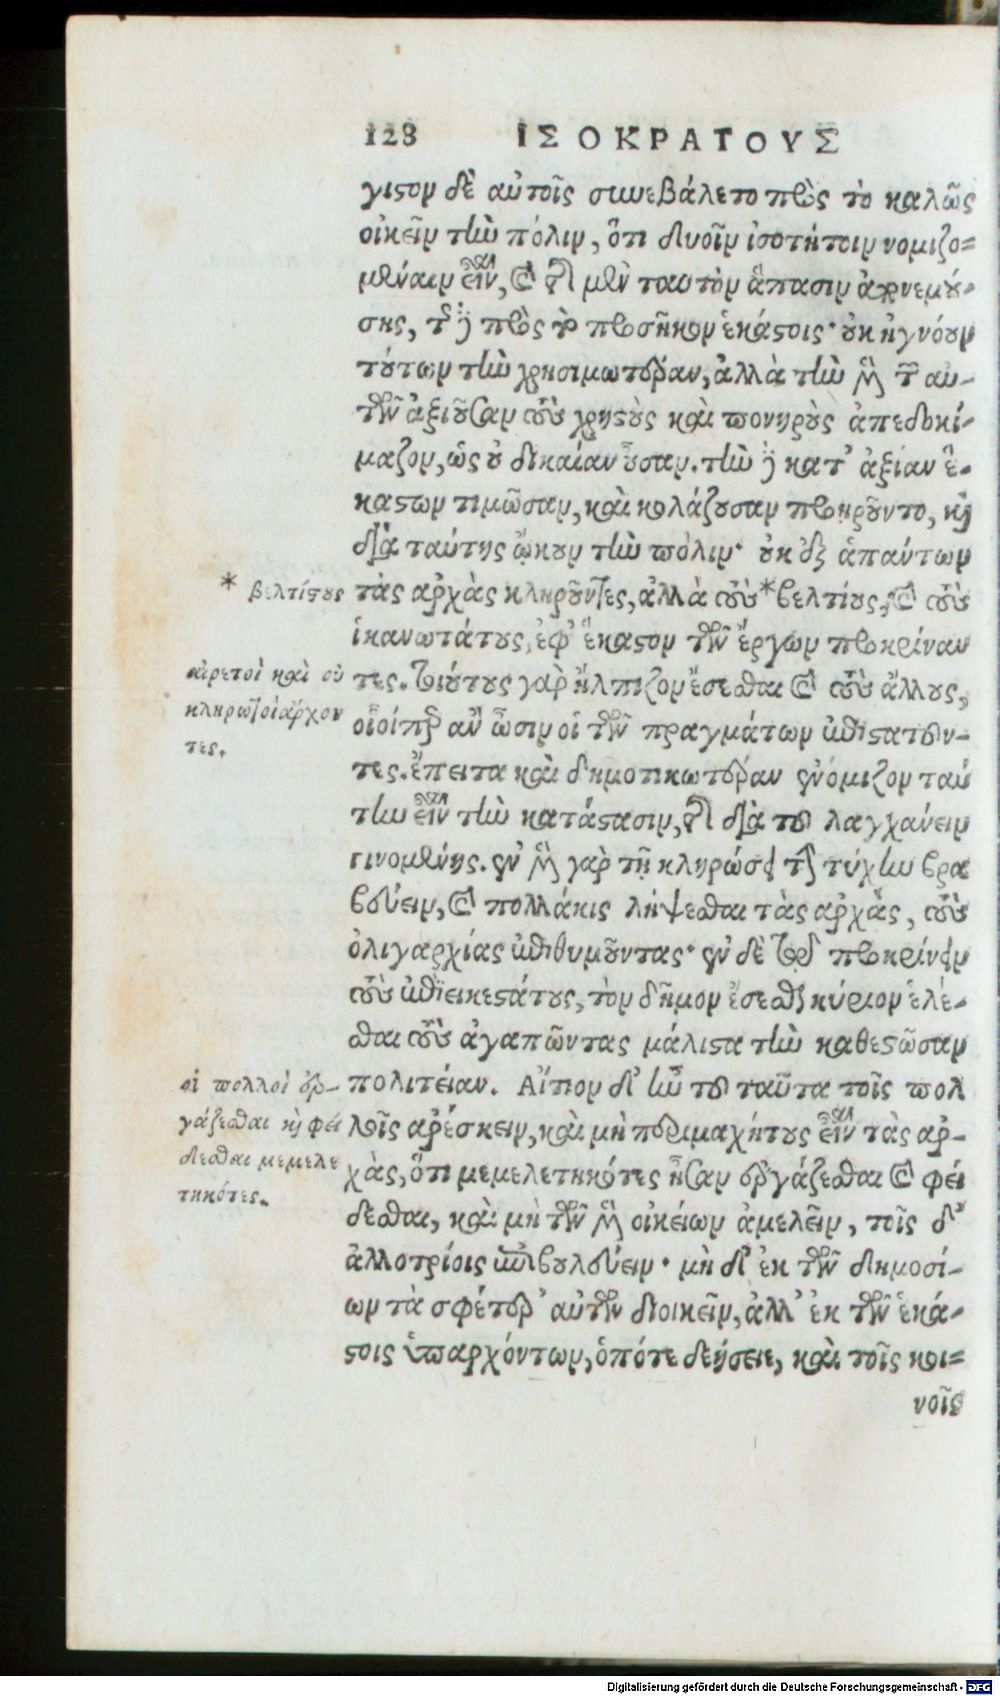 128 ΙΣΟΚΡΑΤΟΥΣ
γιστον δὲ αὐτοῖς συνεβάλετο πρὸς τὸ καλῶς
οἰκεῖν τὴν πόλιν, ὅτι δυοῖν ἰσοτήτοιν νομιζο=
μέναιν εἶναι, καὶ τῆς μὲν ταυτὸν ἅπασιν ἀπονεμού-
σης, τῆς δὲ πρὸς τὸ προσῆκον ἑκάστοις· οὐκ ἠγνόουν
τούτων τὴν χρησιμωτέραν, ἀλλὰ τὴν μὲν τῶν αὐ-
τῶν ἀξιοῦσαν τοὺς χρηστοὺς καὶ πονηροὺς ἀπεδοκί-
μαζον, ὡς οὐ δικαίαν οὖσαν. τὴν δὲ κατ' ἀξίαν ἕ-
καστον τιμῶσαν, καὶ κολάζουσαν προῃροῦντο, καὶ
διὰ ταύτης ᾤκουν τὴν πόλιν· οὐκ ἐξ ἁπάντων
* βελτίστους
τὰς ἀρχὰς κληροῦντες, ἀλλὰ τοὺς *βελτίους, καὶ τοὺς
ἱκανωτάτους, ἐφ' ἕκαστον τῶν ἔργων προκρίναν
αἱρετοὶ καὶ οὐ
κληρωτοὶ ἄρχον
τες.
τες. τοιούτους γὰρ ἤλπιζον ἔσεσθαι καὶ τοὺς ἄλλους,
οἷοί περ ἂν ὦσιν οἱ τῶν πραγμάτων ἐπιστατοῦν-
τες. ἔπειτα καὶ δημοτικωτέραν ἐνόμιζον ταύ
την εἶναι τὴν κατάστασιν, τῆς διὰ τοῦ λαγχάνειν
γινομένης. ἐν μὲν γὰρ τῇ κληρώσει τὴν τύχην βρα
βεύειν, καὶ πολλάκις λήψεσθαι τὰς ἀρχὰς, τοὺς
ὀλιγαρχίας ἐπιθυμοῦντας· ἐν δὲ τῷ προκρίνειν
τοὺς ἐπιεικεστάτους, τὸν δῆμον ἔσεσθαι κύριον ἑλέ-
σθαι τοὺς ἀγαπῶντας μάλιστα τὴν καθεστῶσαν
οἱ πολλοὶ ἐρ-
γάζεσθαι καὶ φεί
δεσθαι μεμελε
τηκότες.
πολιτείαν. Αἴτιον δ' ἦν τοῦ ταῦτα τοῖς πολ
λοῖς ἀρέσκειν, καὶ μὴ περιμαχήτους εἶναι τὰς ἀρ-
χὰς, ὅτι μεμελετηκότες ἦσαν ἐργάζεσθαι καὶ φεί
δεσθαι, καὶ μὴ τῶν μὲν οἰκείων ἀμελεῖν, τοῖς δ'
ἀλλοτρίοις ἐπιβουλεύειν· μὴ δ' ἐκ τῶν δημοσί-
ων τὰ σφέτερ' αὐτῶν διοικεῖν, ἀλλ' ἐκ τῶν ἑκά-
στοις ὑπαρχόντων, ὁπότε δεήσειε, καὶ τοῖς κοι=
νοῖς
Digitalisierung gefördert durch die Deutsche Forschungsgemeinschaft - DFG